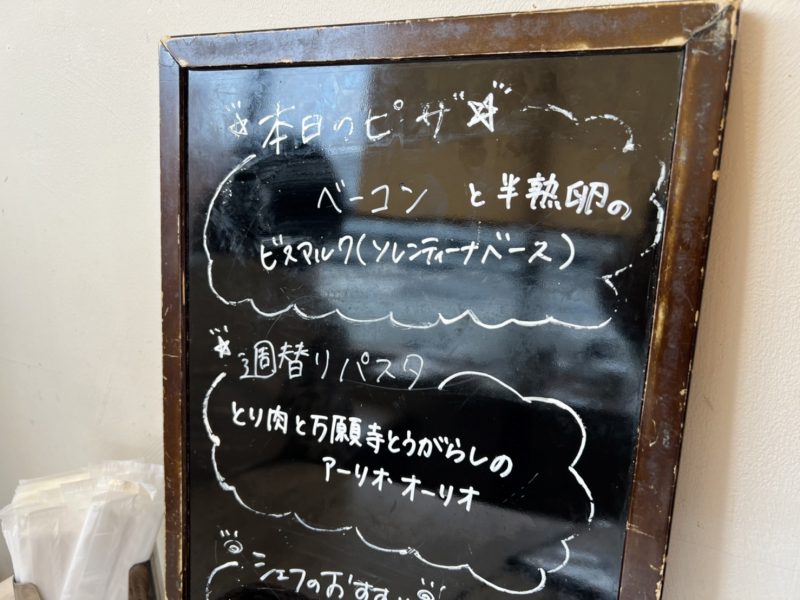 本日のピザ
ベーコン と半熟卵の
ビスマルク(ソレンティーナベース)
週替りパスタ
とり肉と万願寺とうがらしの
アーリオ・オーリオ
シェフのおすすめ